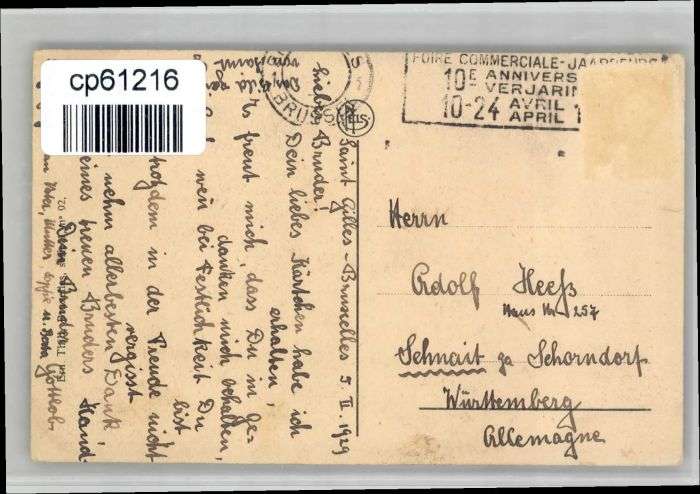 cp61216
BRUX
FOIRE COMMERCIALE - JAARBEURS
10E ANNIVERS
VERJARIN
10-24 AVRIL
APRIL 1
Saint Gilles - Bruxelles 5 II. 1929
Lieber Bruder!
Dein liebes Kärtchen habe ich
erhalten,
's freut mich, dass Du in ge-
danken mich behalten,
wen bei Festlichkeit Du
bist
trotzdem in der Freude nicht
vergisst
nehm allerbesten Dank
eines treuen Bruders Hand-
Dein Bruder
Vater, Mutter, u. Gottlob
Herrn
Adolf Heeß
Haus Nr. 257
Schnait ga Schorndorf
Württemberg
Allemagne